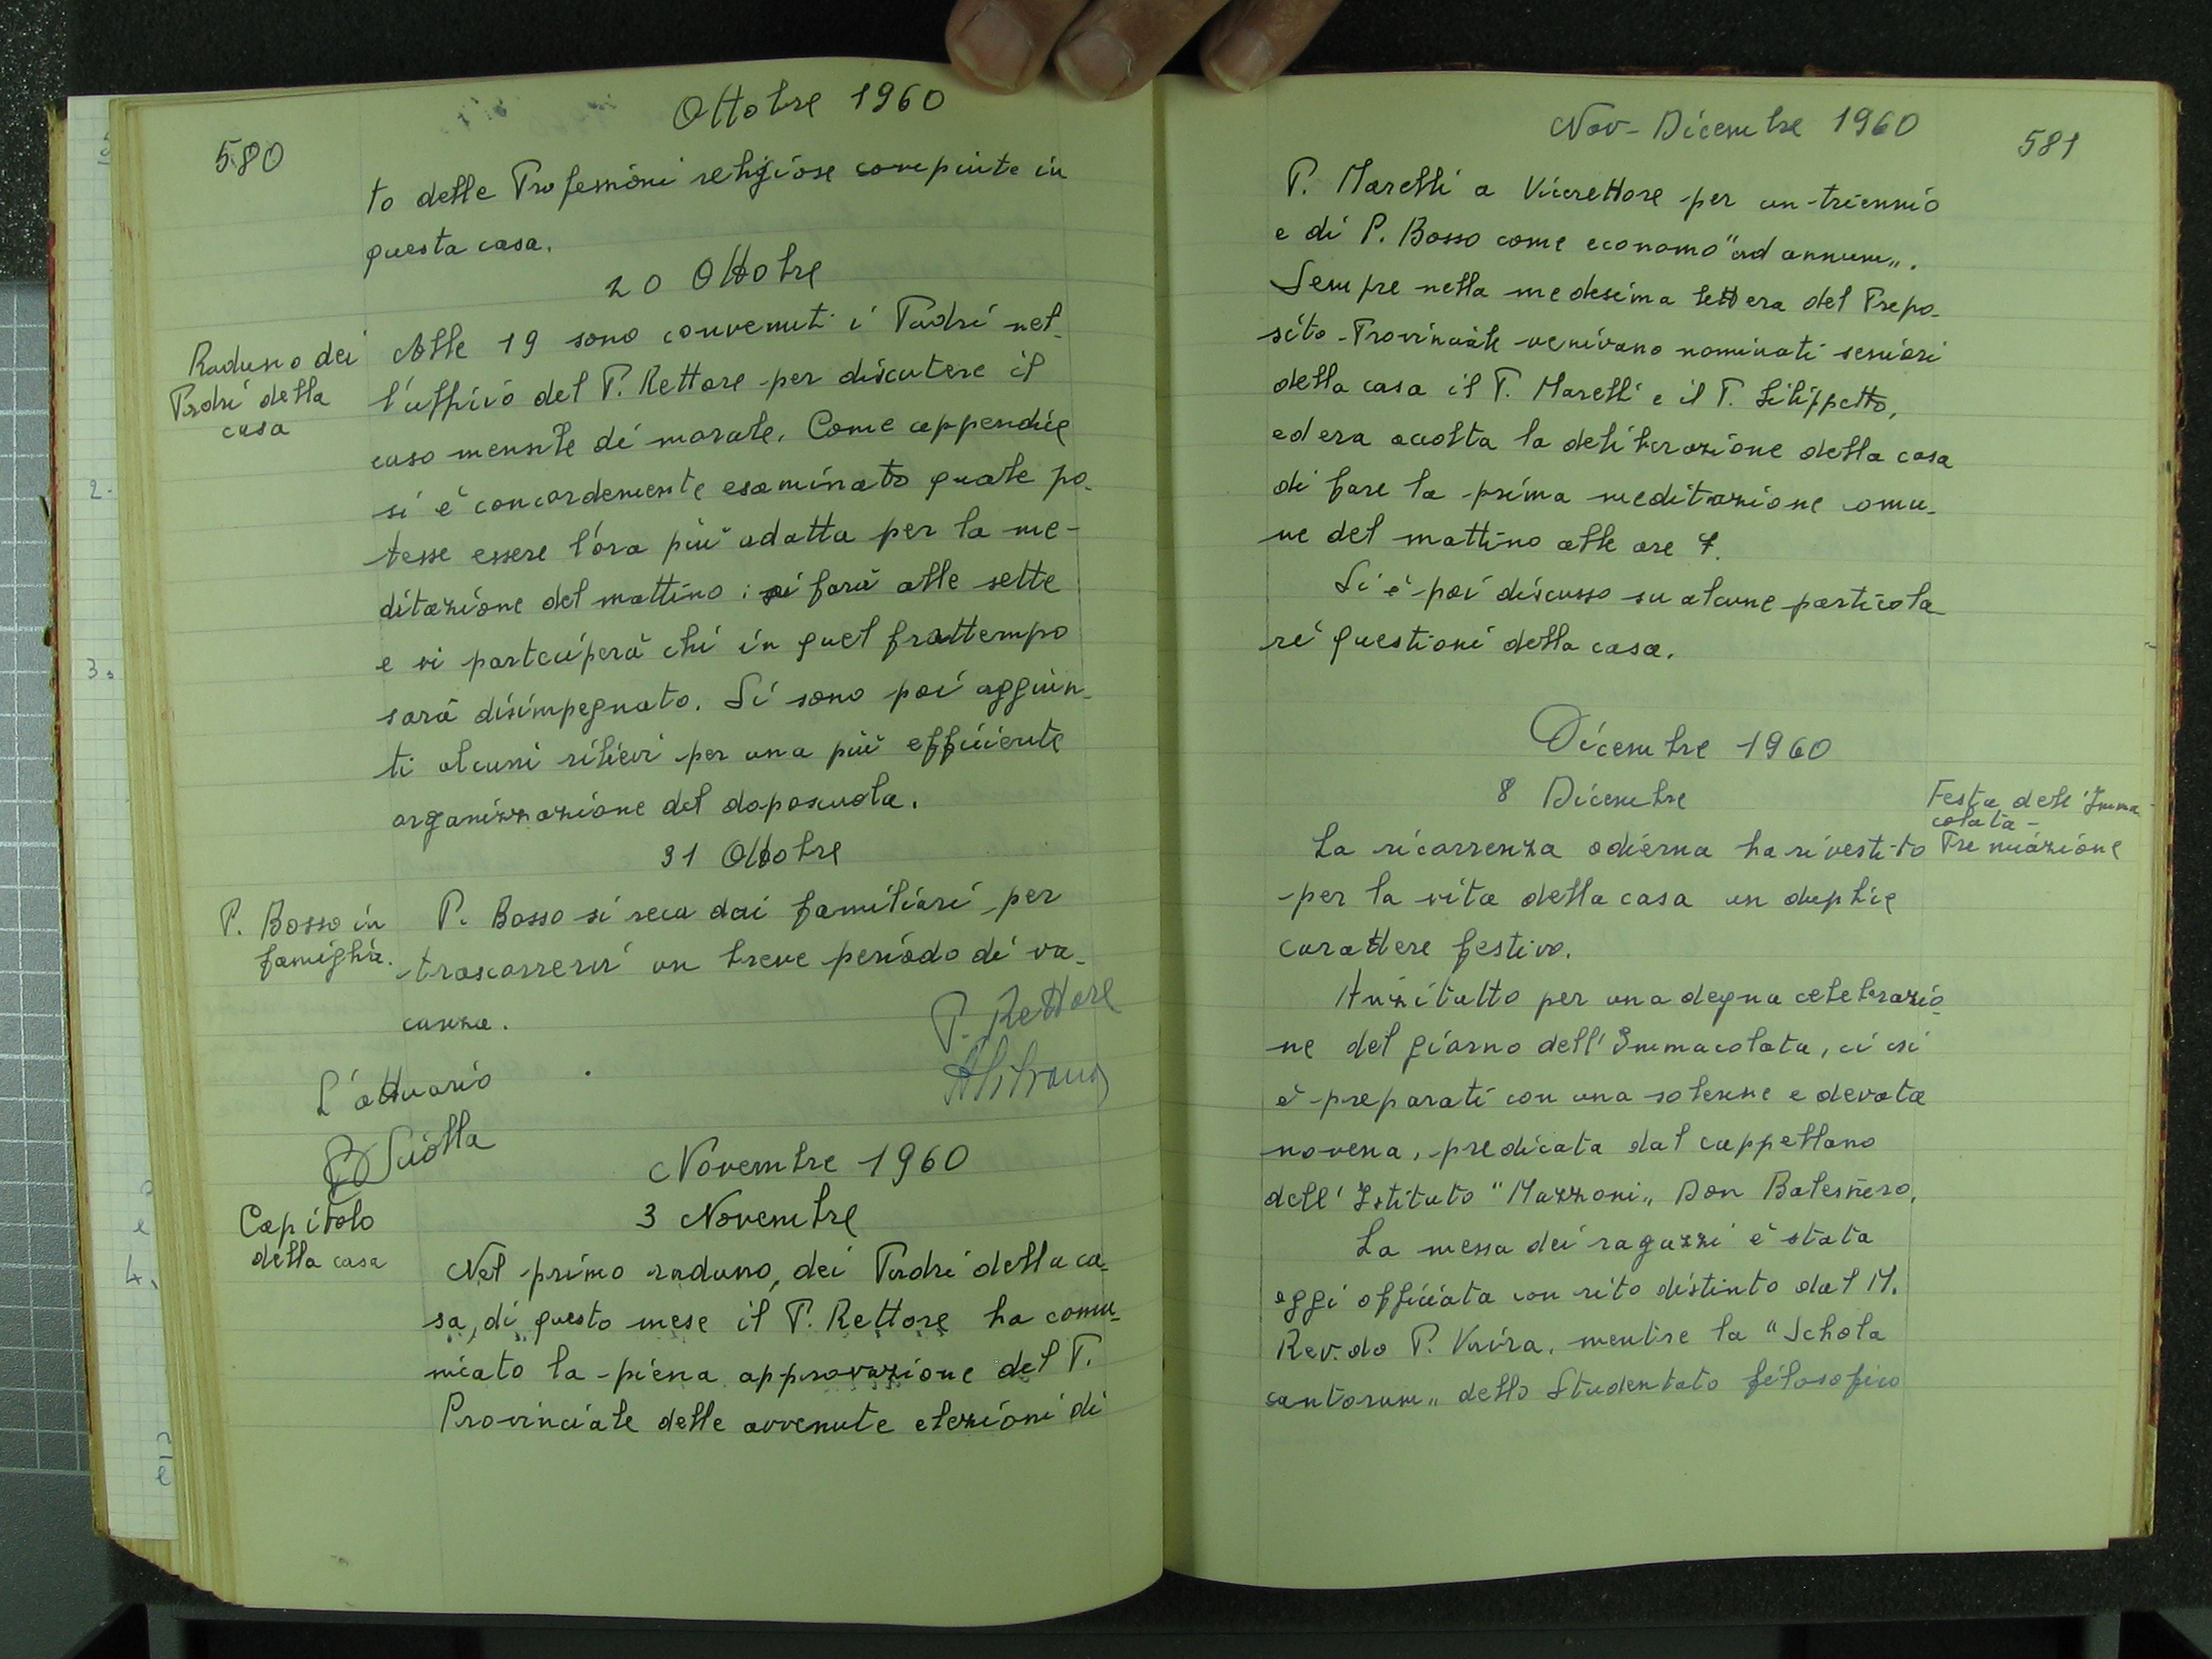 Ottobre 1960
580
to delle Professioni religiose compiute in
questa casa.
20 Ottobre
Raduno dei
Padri della
casa
Alle 19 sono convenuti i Padri nel-
l'ufficio del P. Rettore per discutere il
caso mensile di morale. Come appendice
si è concordemente esaminato quale po-
tesse essere l'ora più adatta per la me-
ditazione del mattino: si farà alle sette
e vi parteciperà chi in quel frattempo
sarà disimpegnato. Si sono poi aggiun-
ti alcuni rilievi per una più efficiente
organizzazione del doposcuola.
31 Ottobre
P. Bosso in
famiglia.
P. Bosso si reca dai familiari per
trascorrervi un breve periodo di va-
canza.
P. Rettore
L'attuario
Novembre 1960
3 Novembre
Capitolo
della casa
Nel primo raduno, dei Padri della ca-
sa, di questo mese il P. Rettore ha comu-
nicato la piena approvazione del P.
Provinciale delle avvenute elezioni di
Nov-Dicembre 1960
581
P. Marelli a Vicerettore per un triennio
e di P. Bosso come economo "ad annum".
Sempre nella medesima lettera del Prepo-
sito Provinciale venivano nominati seniori
della casa il P. Marelli e il P. Filippetto,
ed era accolta la deliberazione della casa
di fare la prima meditazione comu-
ne del mattino alle ore 7.
Si è poi discusso su alcune particola
ri questioni della casa.
Dicembre 1960
8 Dicembre
Festa dell'Imma-
colata -
Premiazione
La ricorrenza odierna ha rivestito
per la vita della casa un duplice
carattere festivo.
Anzitutto per una degna celebrazio-
ne del giorno dell'Immacolata, ci si
è preparati con una solenne e devota
novena, predicata dal cappellano
dell'Istituto "Mazzoni" Don Balestrero.
La messa dei ragazzi è stata
oggi officiata con rito distinto dal M.
Rev.do P. Vaira, mentre la "Schola
cantorum" dello Studentato filosofico